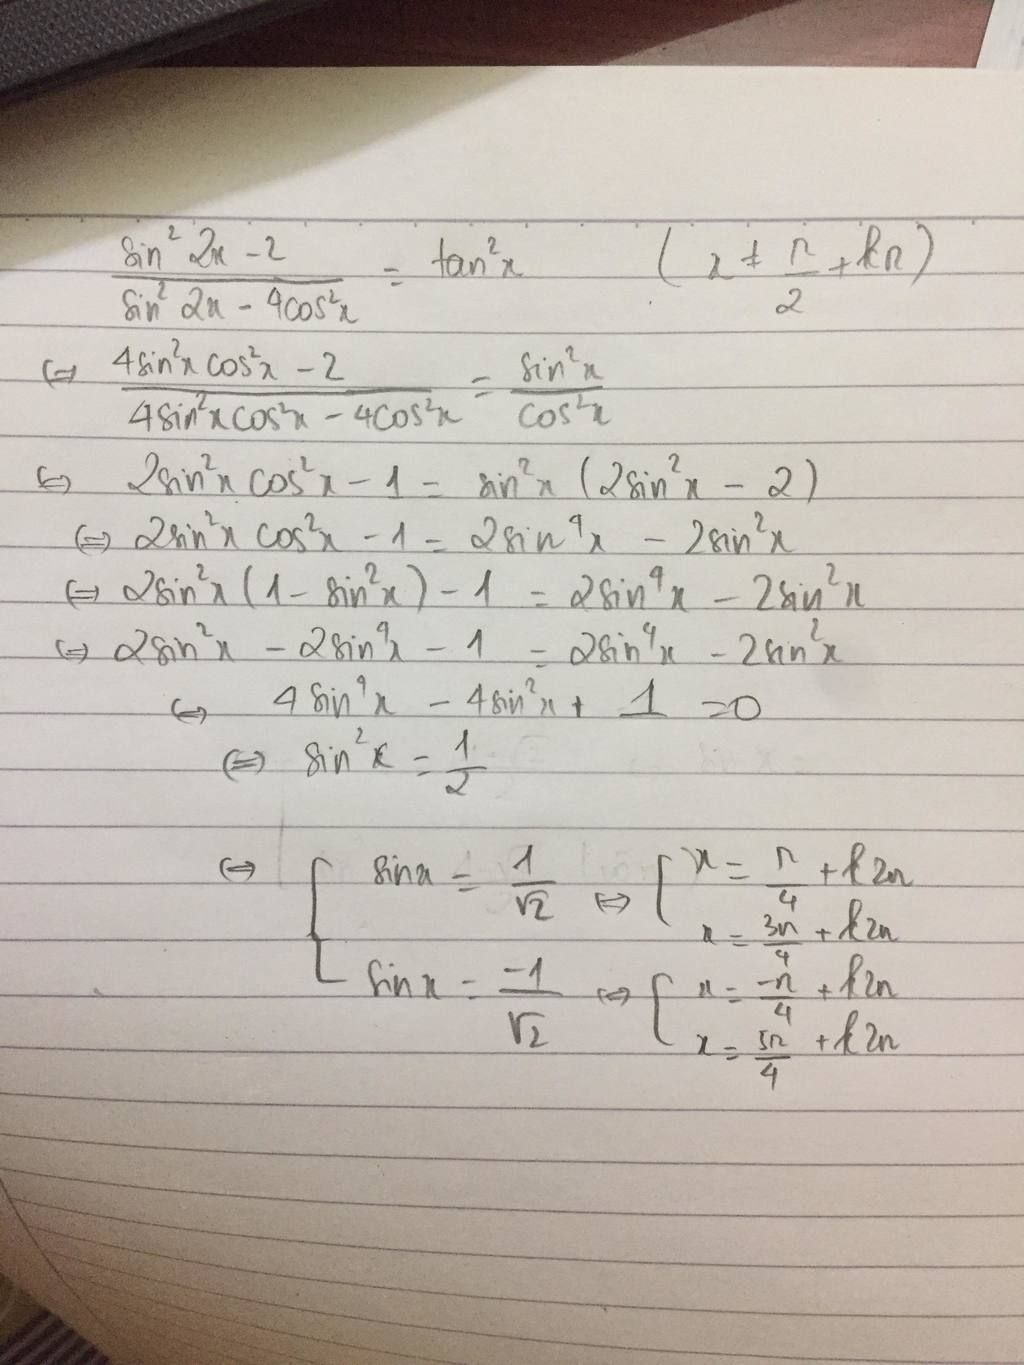 (sin² 2x - 2)/(sin² 2x - 4cos²x) = tan²x (x ≠ π/2 + kπ)
⇔ (4sin²x cos²x - 2)/(4sin²x cos²x - 4cos²x) = sin²x/cos²x
⇔ 2sin²x cos²x - 1 = sin²x (2sin²x - 2)
⇔ 2sin²x cos²x - 1 = 2sin⁴x - 2sin²x
⇔ 2sin²x (1 - sin²x) - 1 = 2sin⁴x - 2sin²x
⇔ 2sin²x - 2sin⁴x - 1 = 2sin⁴x - 2sin²x
⇔ 4sin⁴x - 4sin²x + 1 = 0
⇔ sin²x = 1/2
⇔ [ sinx = 1/√2 ⇔ [ x = π/4 + k2π
x = 3π/4 + k2π
sinx = -1/√2 ⇔ [ x = -π/4 + k2π
x = 5π/4 + k2π